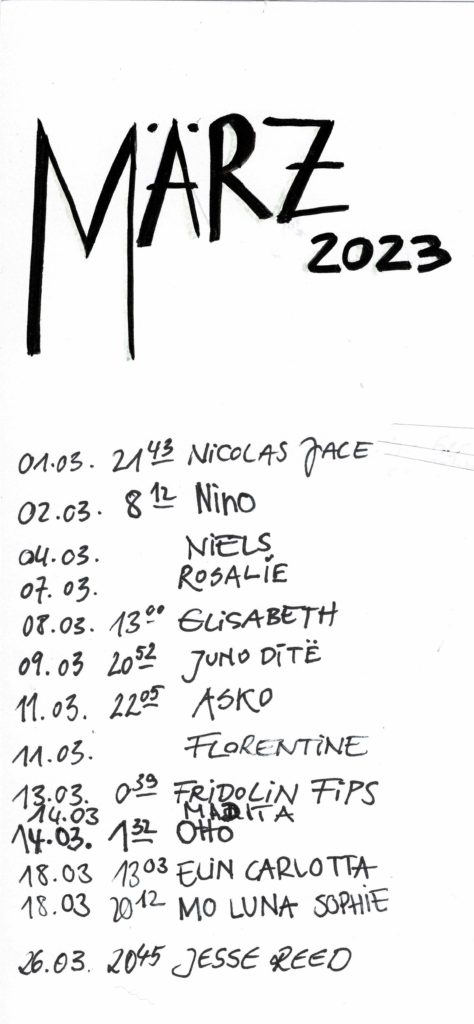 MÄRZ
2023
01.03. 21 43 NiCOLAS JACE
02.03. 8 12 Nino
04.03. NiELS
07. 03. ROSALIE
08.03. 13 00 ELiSABETH
09.03 20 52 JUNO DiTË
11.03. 22 05 ASKO
11.03. FLORENTiNE
13.03. 0 39 FRiDOLiN FiPS
14.03 MADITA
14.03. 1 32 Otto
18.03 13 03 ELiN CARLOTTA
18.03 20 12 MO LUNA SOPHiE
26.03. 20 45 JESSE REED